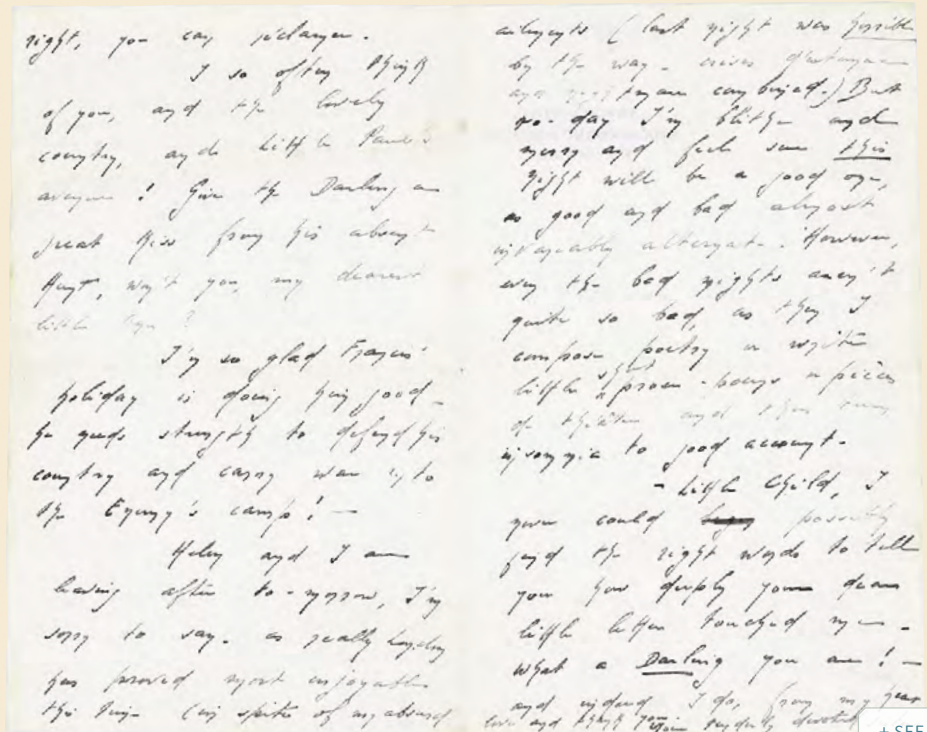 right, you can
I so often think
of you, and the lovely
country, and little Paul's
! Give the Darling a
great kiss from his absent
Aunt, won't you, my dearest
little
I'm so glad Francis'
holiday is doing him good -
he needs strength to defend his
country and carry war into
the Enemy's camp! -
Helen and I are
leaving after to-morrow, I'm
sorry to say. as really London
has proved most enjoyable
this time (in spite of my absurd
ailments (last night was horrible
by the way -
combined.) But
to-day I'm blithe and
merry and feel sure this
night will be a good one,
as good and bad almost
invariably alternate. However,
even the bad nights aren't
quite so bad, as then I
compose poetry or write
little short prose-poems or pièces
de théâtre and thus turn
insomnia to good account.
- Little Child, I
never could possibly
find the right words to tell
you how deeply your dear
little letter touched me -
What a Darling you are! -
and indeed I do, from my heart
love and thank you. Your tenderly devoted
+ SEE